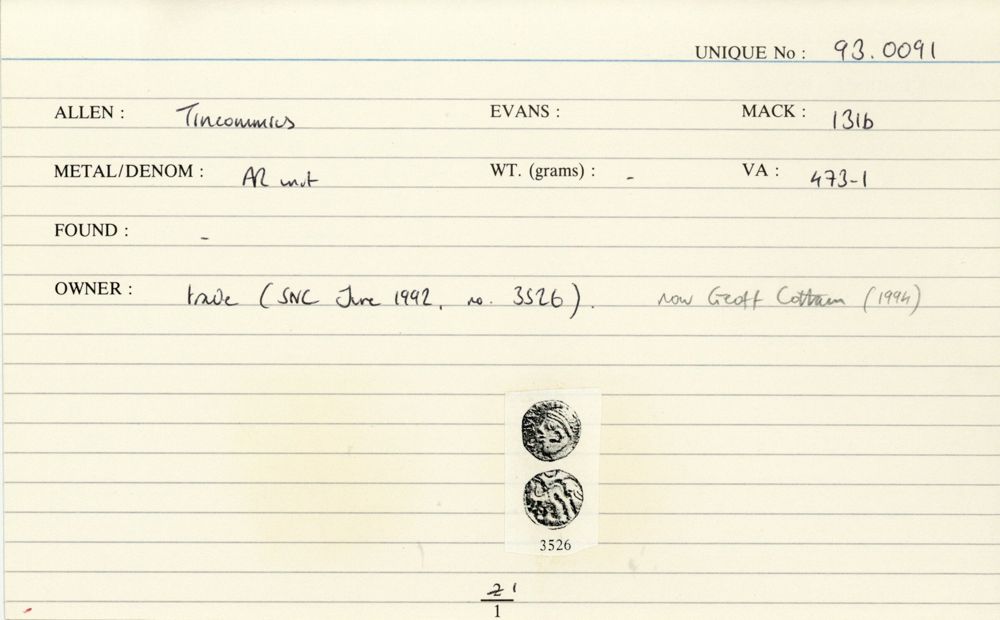 UNIQUE No : 93.0091
ALLEN : Tincommius EVANS : MACK : 131b
METAL/DENOM : AR unit WT. (grams) : - VA : 473-1
FOUND : -
OWNER : trade (SNC June 1992, no. 3526). now Geoff Cottam (1994)
3526
2 1
1